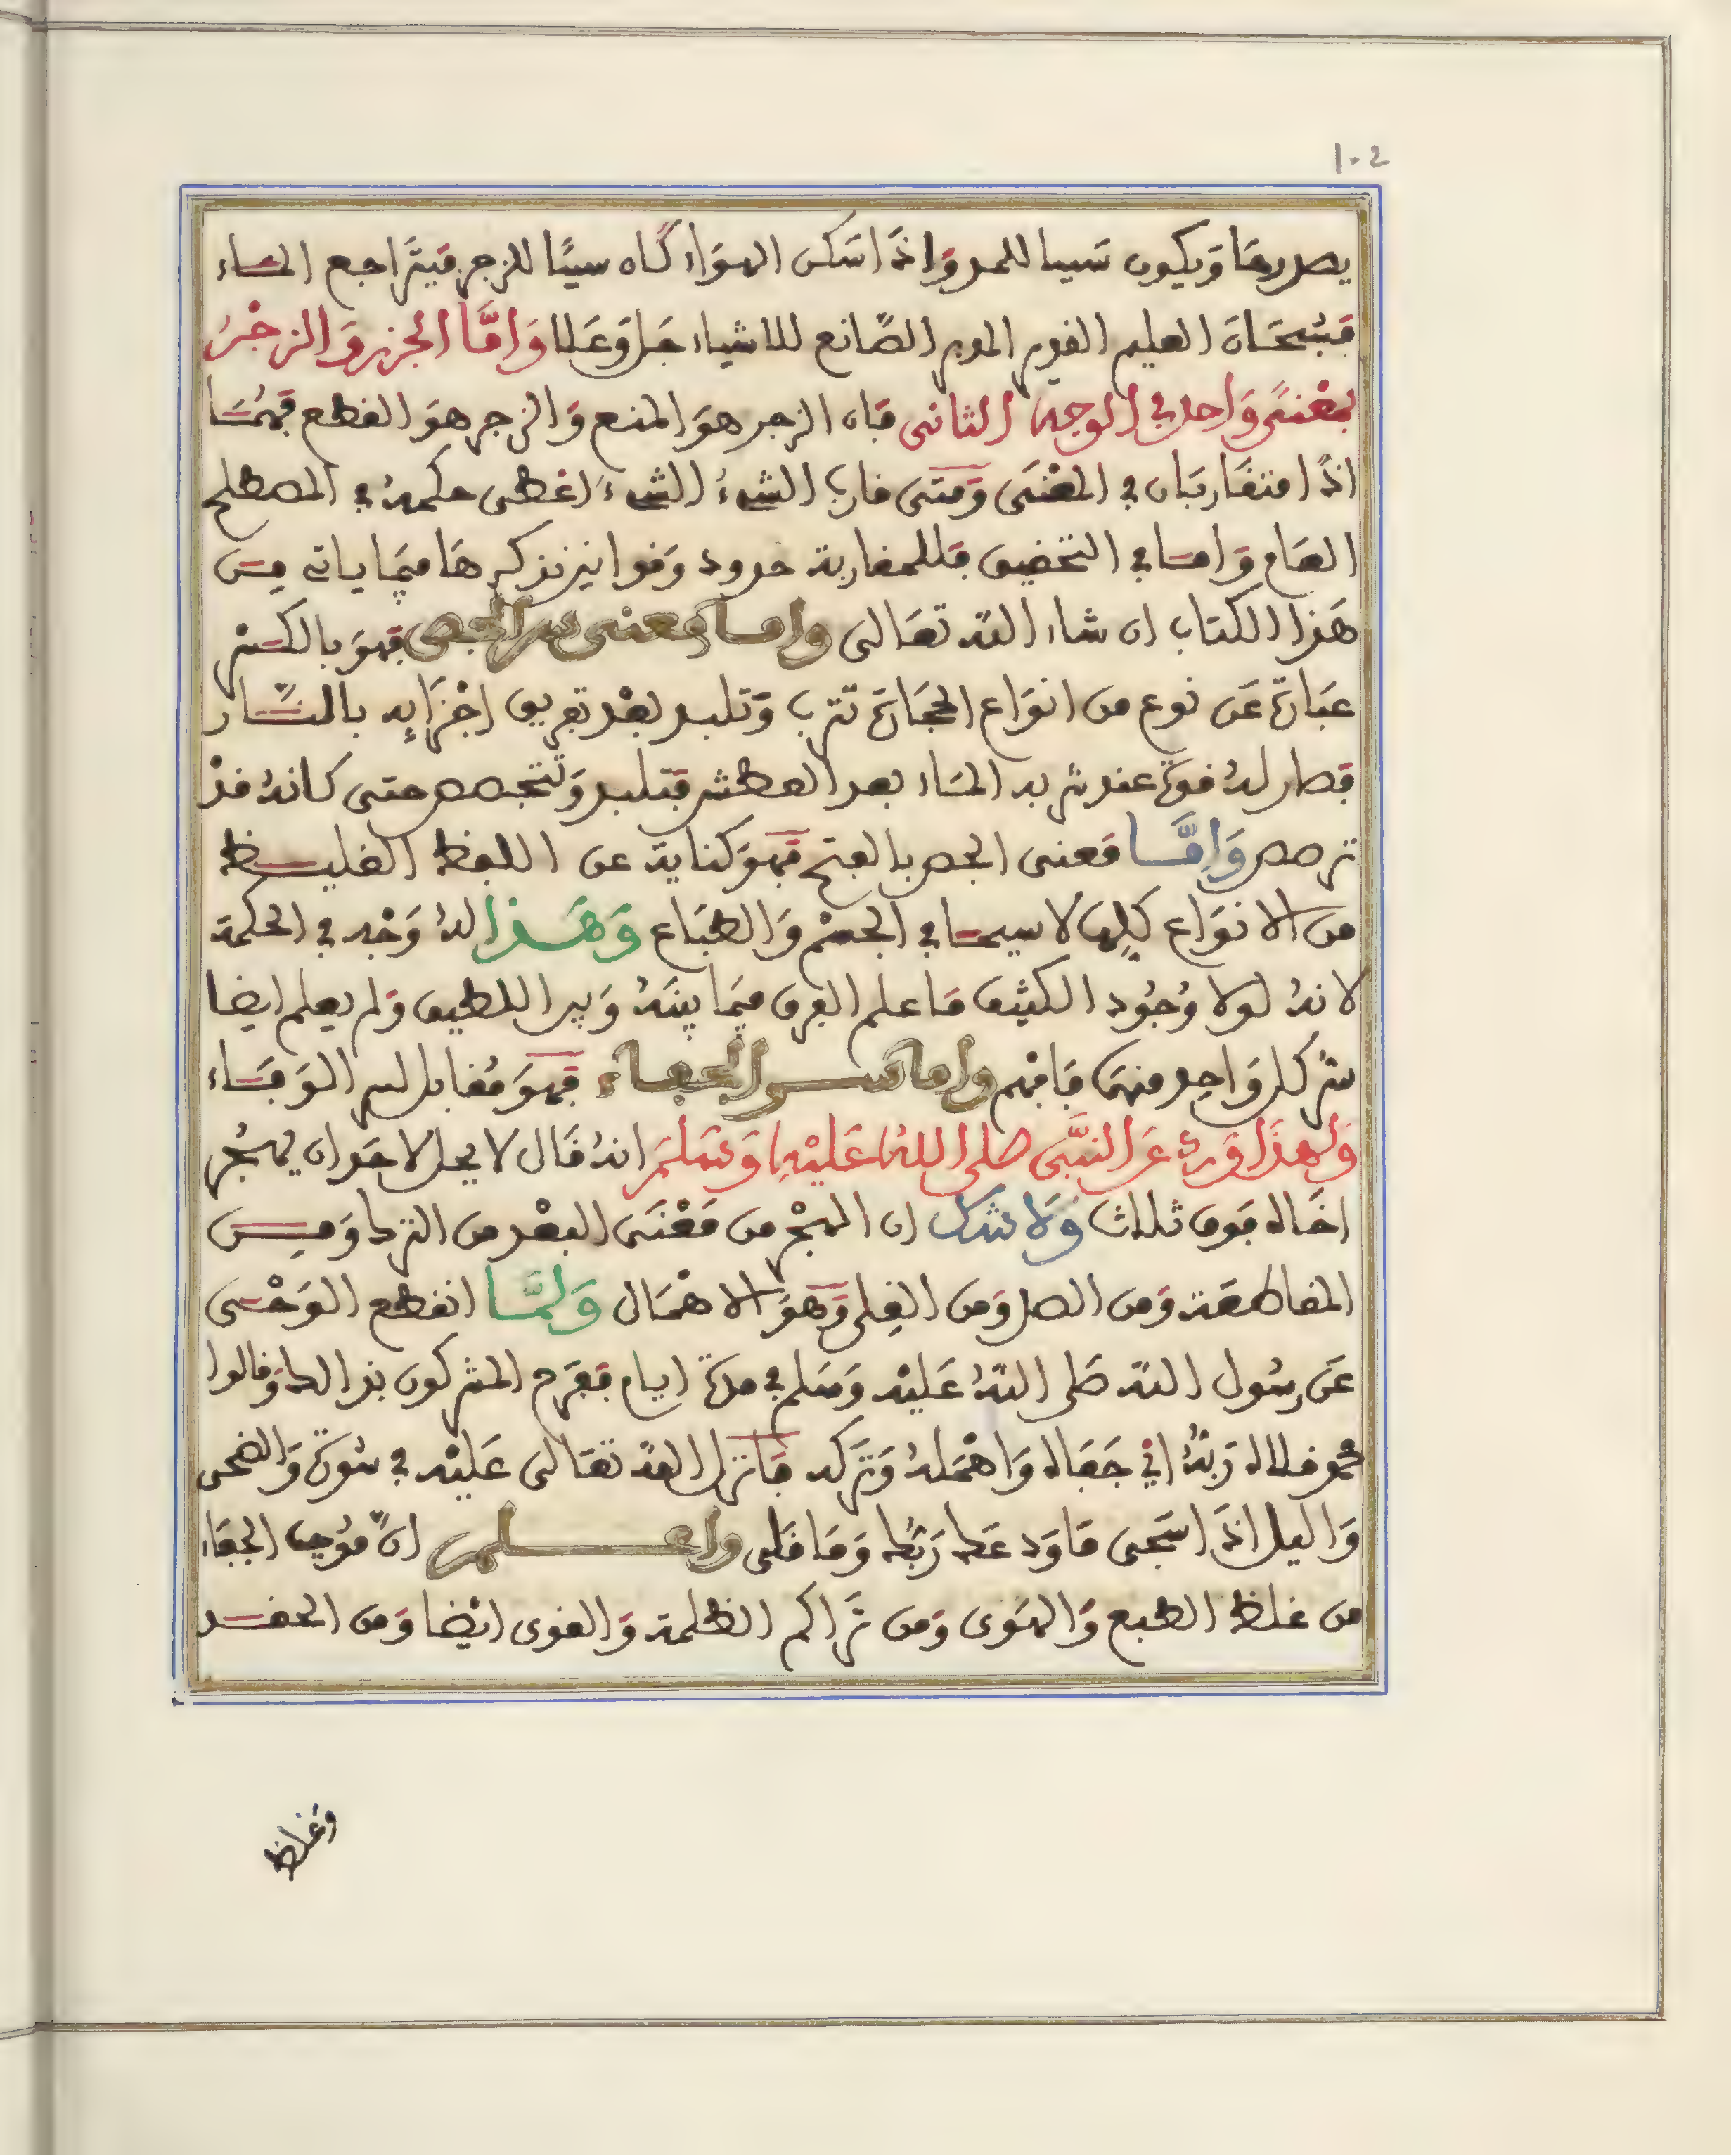 102
يصدرها ويكون سببا للمد واذا سكن الهواء كان سببًا للزجر فيتراجع الماء
فسبحان العليم القديم المدبر الصانع للاشياء جل وعلا وَامَّا الجزر وَالزجْرُ
بمعْنىً وَاحد في الوجه الثاني فان الزجر هوَ المنع وَالزجر هوَ القطع فهُمَا
اذًا متقاربَان في المعْنَى وَمتى قارب الشيءُ الشيءَ اعْطى حكمهُ في المصطلح
العَام وَامَا في التحقيق فللمقاربة حدود وَقوانين نذكرهَا فيمَا ياتي من
هَذا الكتاب ان شاء الله تعَالى واما معنى سر الجص فهوَ بالكسْر
عبَارة عَن نوع من انوَاع الحجَارة تترب وَتلبد بعْد تفريق اجْزَايِه بالنَّار
فصار لهُ قوة عند شربه الماء بعد العطش فتلبد وَتتجصص حتى كانهُ قدْ
ترصص وَامَّا معنى الجص بالفتح فهوَ كناية عن اللفظ الغليظ
من الانوَاع كلها لاسيما في الجسْم وَالطبَاع وَهَذا لهُ وَجْه في الحكمة
لانهُ لولا وُجُود الكثيف مَا علم الفرق فيمَا بينَهُ وَبين اللطيف وَلم يعلم ايضا
سُر كل وَاحِد منهمَا فَافهم واما سر الجفاء فهوَ مُقابل لسر الوَفاء
وَلهذَا وَرد عَن النبَّي صلى اللهُ عَليْهِ وَسَلمَ انهُ قال لا يحل لاحَد ان يهجُر
اخَاه فوق ثلاث وَلا شك ان الهجْر من مَعْنَى البعْد من الترك وَمن
المقاطعَة وَمن الصد وَمن القِلى وَهوَ الاهْمَال وَلمَّا انقطع الوَحْي
عَن رسُول الله صَلى اللهُ عَليْه وَسَلم في مدة ايام ففَرح المشركون بذالك وَقالوا
محمد قلاه رَبهُ اي جَفاه وَاهْملهُ وَتَركه فَانزل الله تعَالى عَليْه في سُورة وَالضحى
وَاليل اذَا سَجى مَا وَدعَك رَبُك وَمَا قلى واعلم انّ مُوجب الجفاء
من غلظ الطبع وَالهوَى وَمن تَراكم الظلمة وَالقوى ايْضا وَمن الحقد
وَغلظ